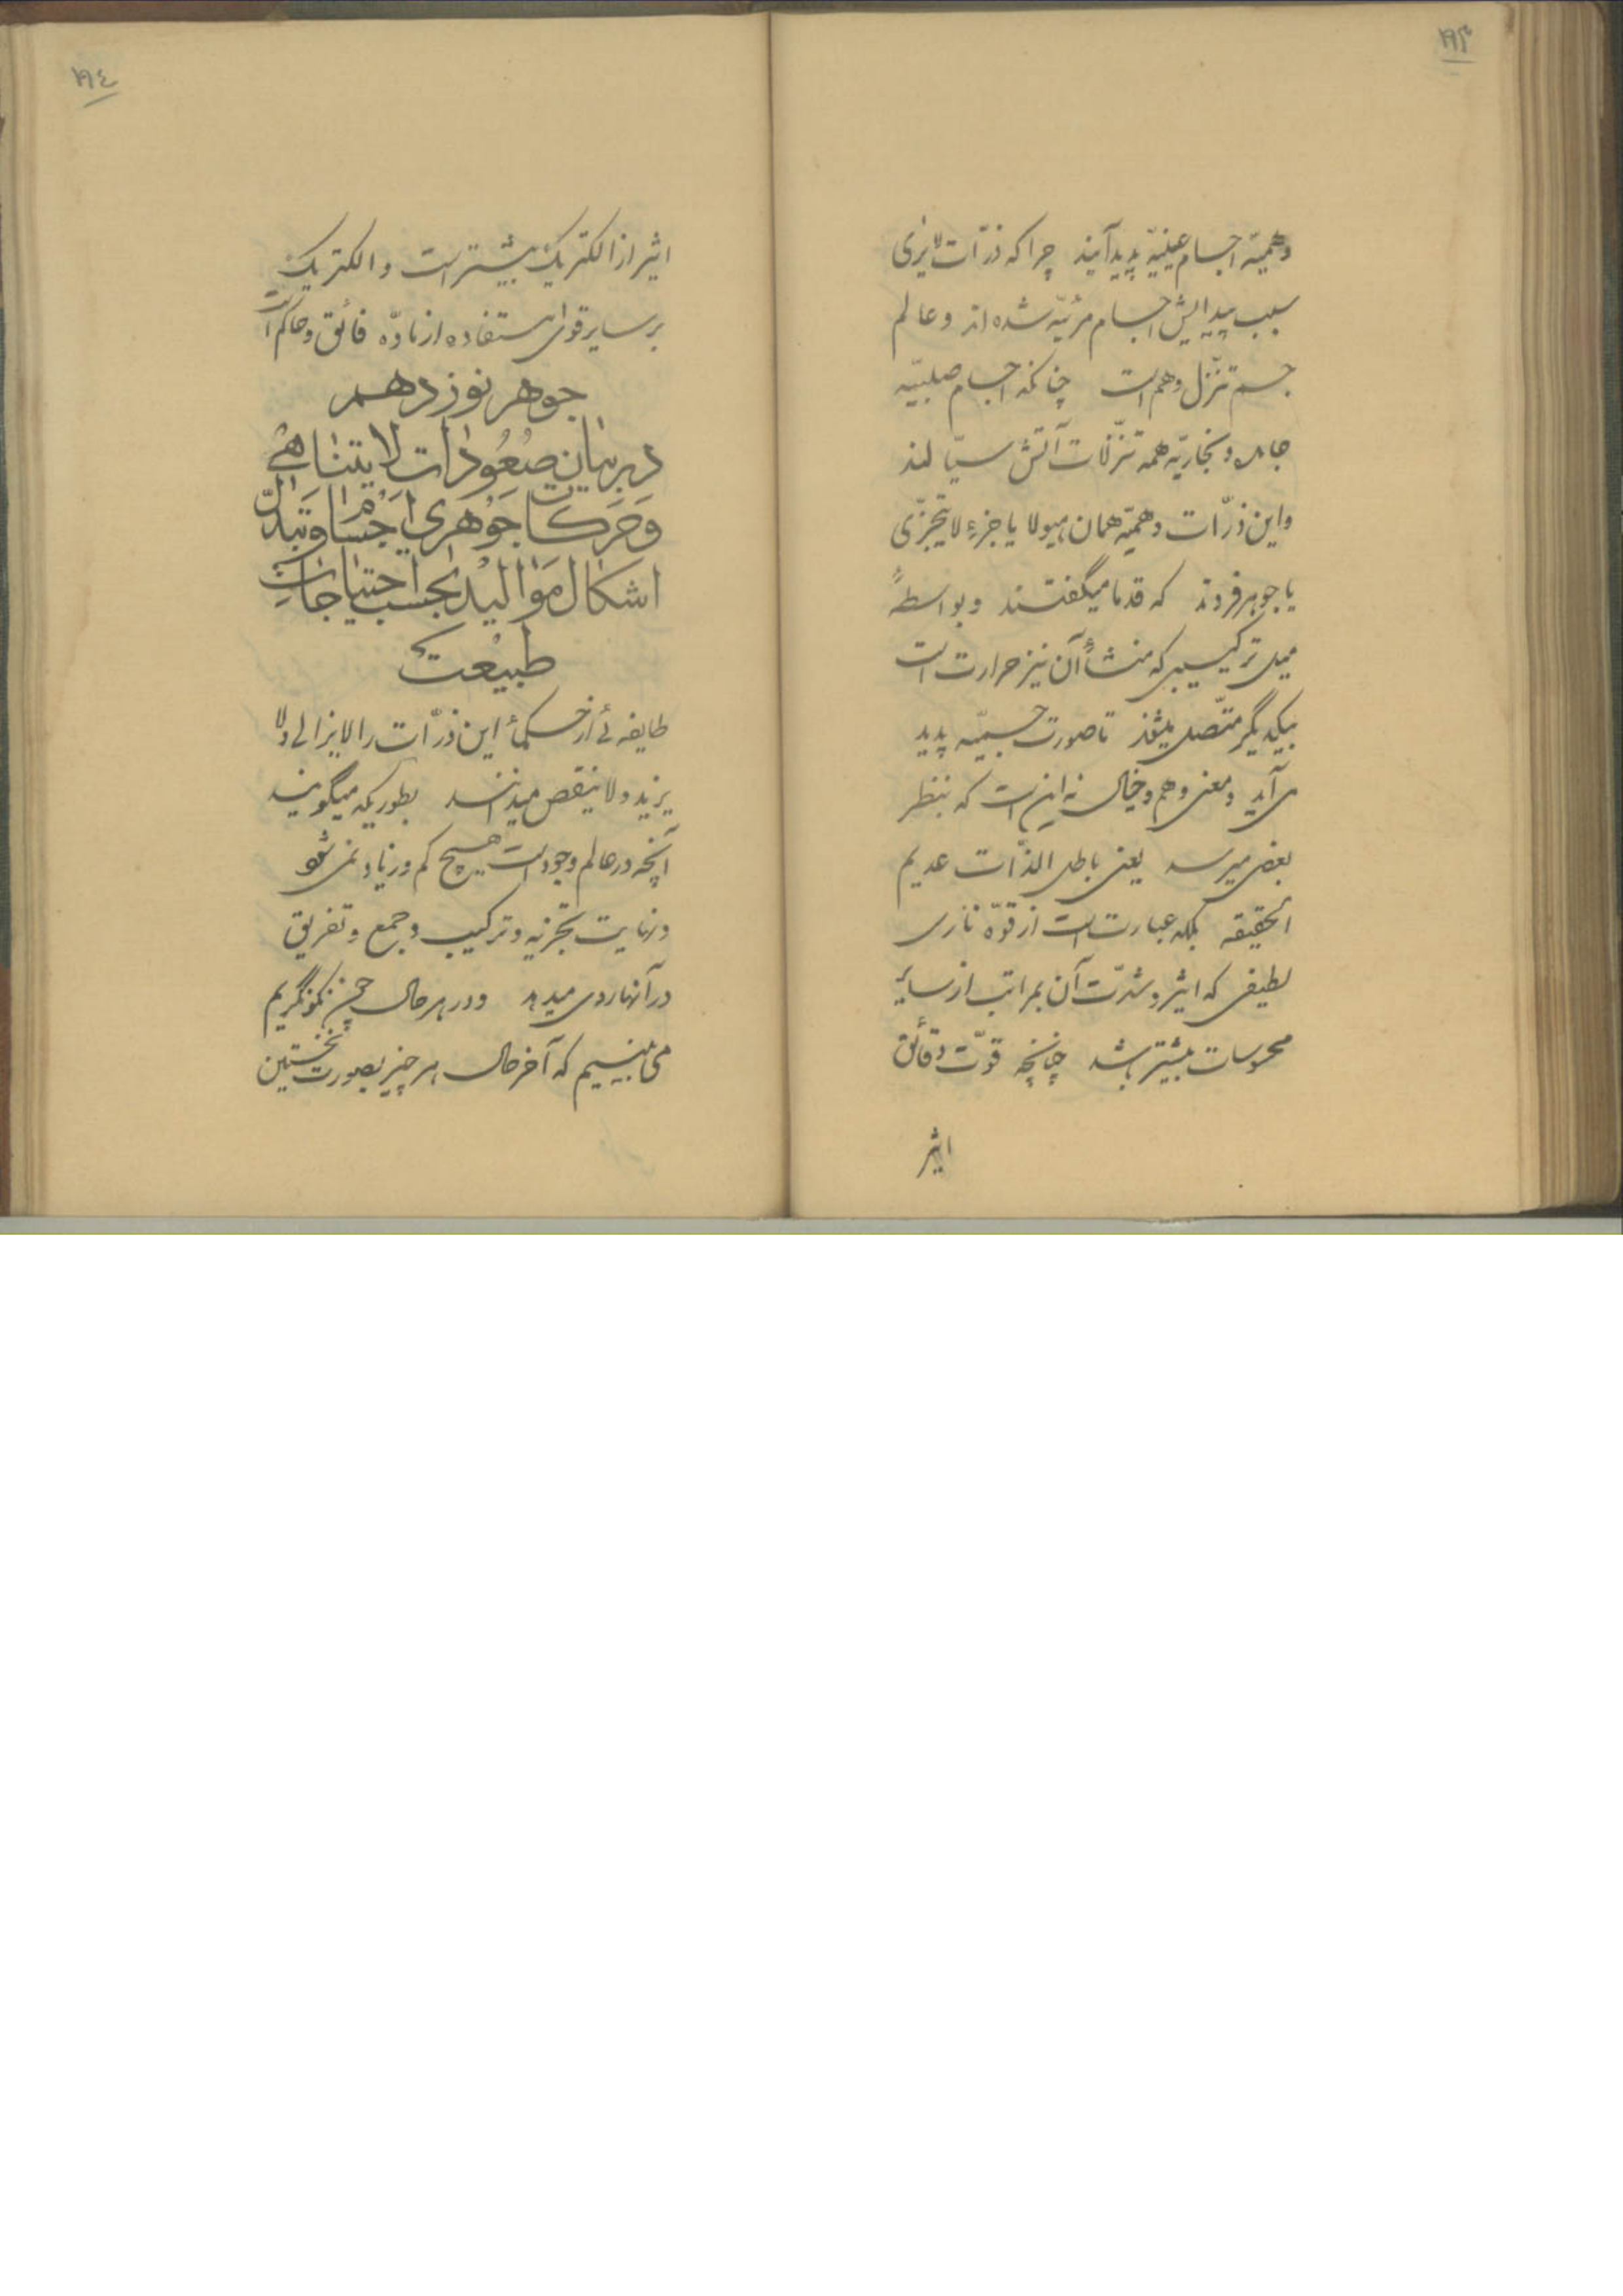 ۱۹۳
وهمیّه اجسام عینیّه پدید آیند چرا که ذرّات لایری
سبب پیدایش اجسام مرئیّه شده اند و عالم
جسم تنزّل وهم است چنانکه اجسام صلبیّه
جامده و بخاریّه همه تنزّلات آتش سیّالند
و این ذرّات وهمیّه همان هیولا یا جزء لایتجزّی
یا جوهر فردند که قدما میگفتند و بواسطهٔ
میل ترکیبی که منشأ آن نیز حرارت است
بیکدیگر متّصل میشوند تا صورت جسمیّه پدید
می آید و معنی وهم و خیال نه این است که بنظر
بعضی میرسد یعنی باطل الذّات عدیم
الحقیقه بلکه عبارت است از قوّه ناری
لطیفی که اثر و شدّت آن بمراتب از سایر
محسوسات بیشتر باشد چنانچه قوّت دقائق
اثیر
۱۹٤
اثیر از الکتریک بیشتر است و الکتریک
بر سایر قوای مستفاده از مادّه فائق و حاکم است
جوهر نوزدهم
در بیان صعود ذرات لایتناهی
و حرکات جوهری اجسام و تبدّل
اشکال موالید بحسب احتیاجات
طبیعت
طایفه ئی از حکماء این ذرّات را لایزالی ولا
یزید ولا ینقص میدانند بطوریکه میگویند
آنچه در عالم وجود است هیچ کم و زیاد نمی شود
و نهایت تجزیه و ترکیب و جمع و تفریق
در آنها روی میدهد و در هر حال چون نکو نگریم
می بینیم که آخر حال هر چیز بصورت نخستین